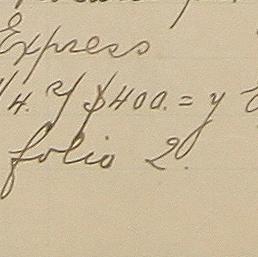 Express
/4. y $400.= y
folio 2.